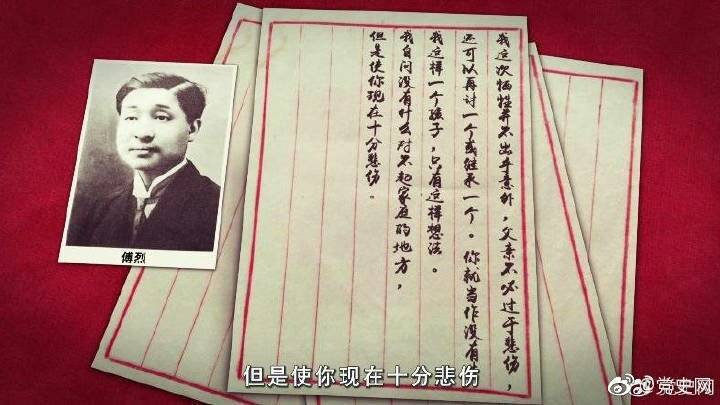 我这次牺牲并不出乎意外，父亲不必过于悲伤，
还可以再讨一个或继承一个。你就当作没有
我这样一个孩子，只有这样想法。
我自问没有什么对不起家庭的地方，
但是使你现在十分悲伤。
傅烈
但是使你现在十分悲伤
党史网